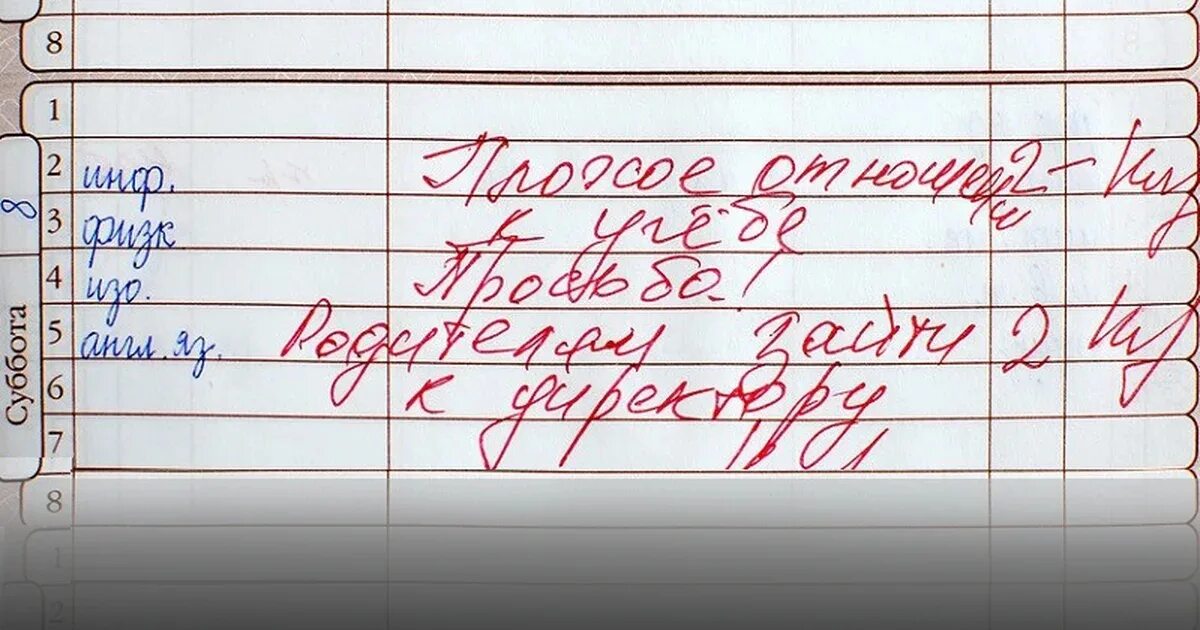 8
1
2 инф. Плохое отношение 2-
3 физк к учёбе
4 изо. Просьба!
5 англ. яз. Родителям зайти 2
6 к директору
7
8
1
2
8
Суббота